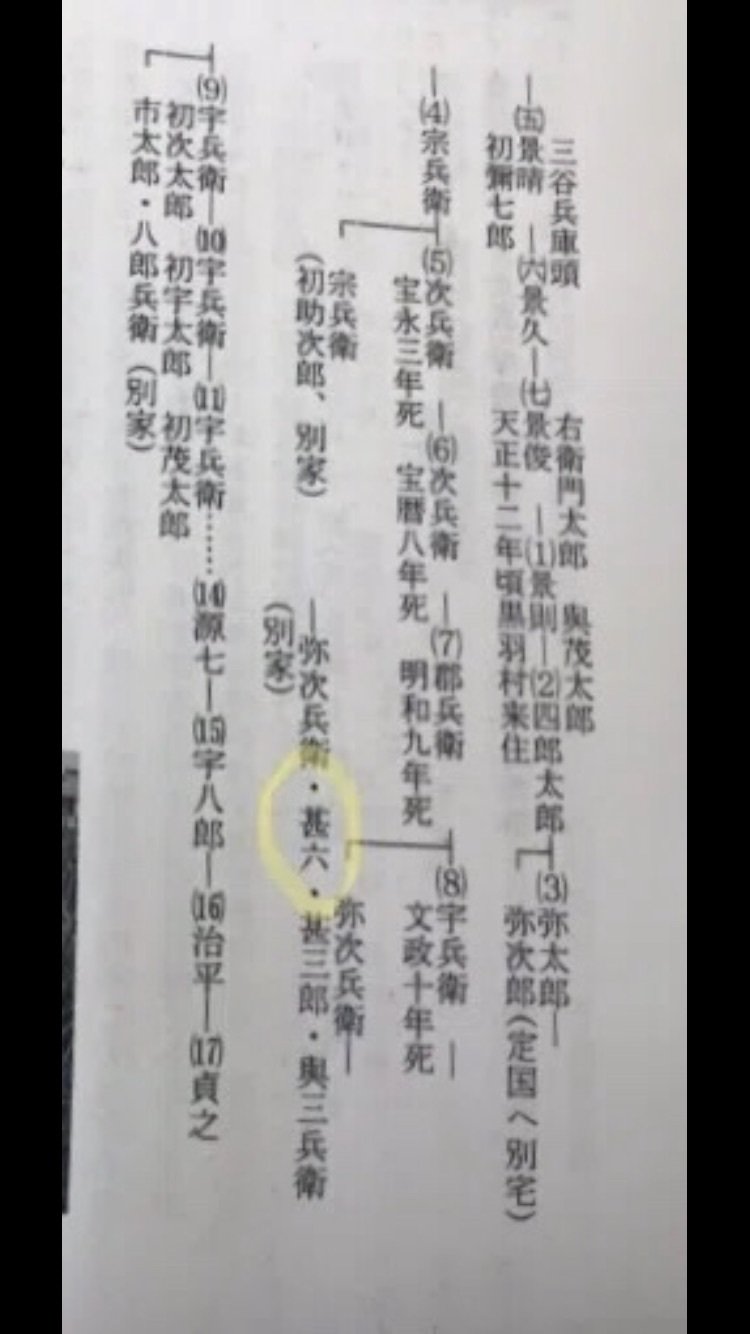 三谷兵庫頭　右衛門太郎　與茂太郎
―㈤景晴―㈥景久―㈦景俊―⑴景則―⑵四郎太郎―⑶弥太郎―
初彌七郎　天正十二年頃黒羽村来住　弥次郎（定国へ別宅）
―⑷宗兵衛―⑸次兵衛―⑹次兵衛―⑺郡兵衛―⑻宇兵衛―
宝永三年死　宝暦八年死　明和九年死　文政十年死
宗兵衛　弥次兵衛―
（初助次郎、別家）　―弥次兵衛・甚六・甚三郎・與三兵衛
（別家）
⑼宇兵衛―⑽宇兵衛―⑾宇兵衛……⒁源七―⒂宇八郎―⒃治平―⒄貞之
初次太郎　初宇太郎　初茂太郎
市太郎・八郎兵衛（別家）